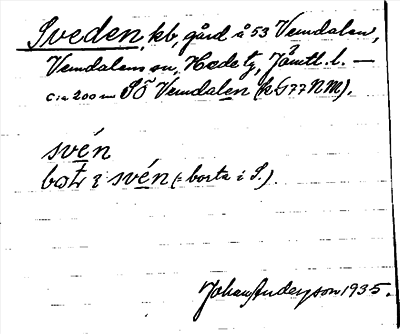 Sveden, kb, gård å 53 Vemdalen,
Vemdalens sn, Hede tg, Jämtl. l. —
c:a 200 m SÖ Vemdalen (kb 177 NM).
svén
bo̱tɩ ɩ svén (= borta i S.).
Johan Anderzson 1935.